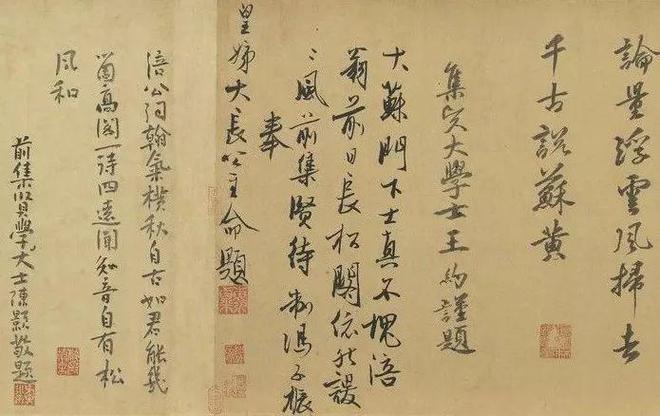 論量浮雲風掃去
千古說蘇黃
集賢大學士王約謹題
大蘇門下士真不愧涪
翁前日長松閣依然謖
〻風前集賢待制馮子振
奉
皇姊大長公主命題
涪公詞翰氣橫秋自古如君能幾
留高閣一詩四遠聞知音自有松
風和
前集賢學大士陳顥敬題